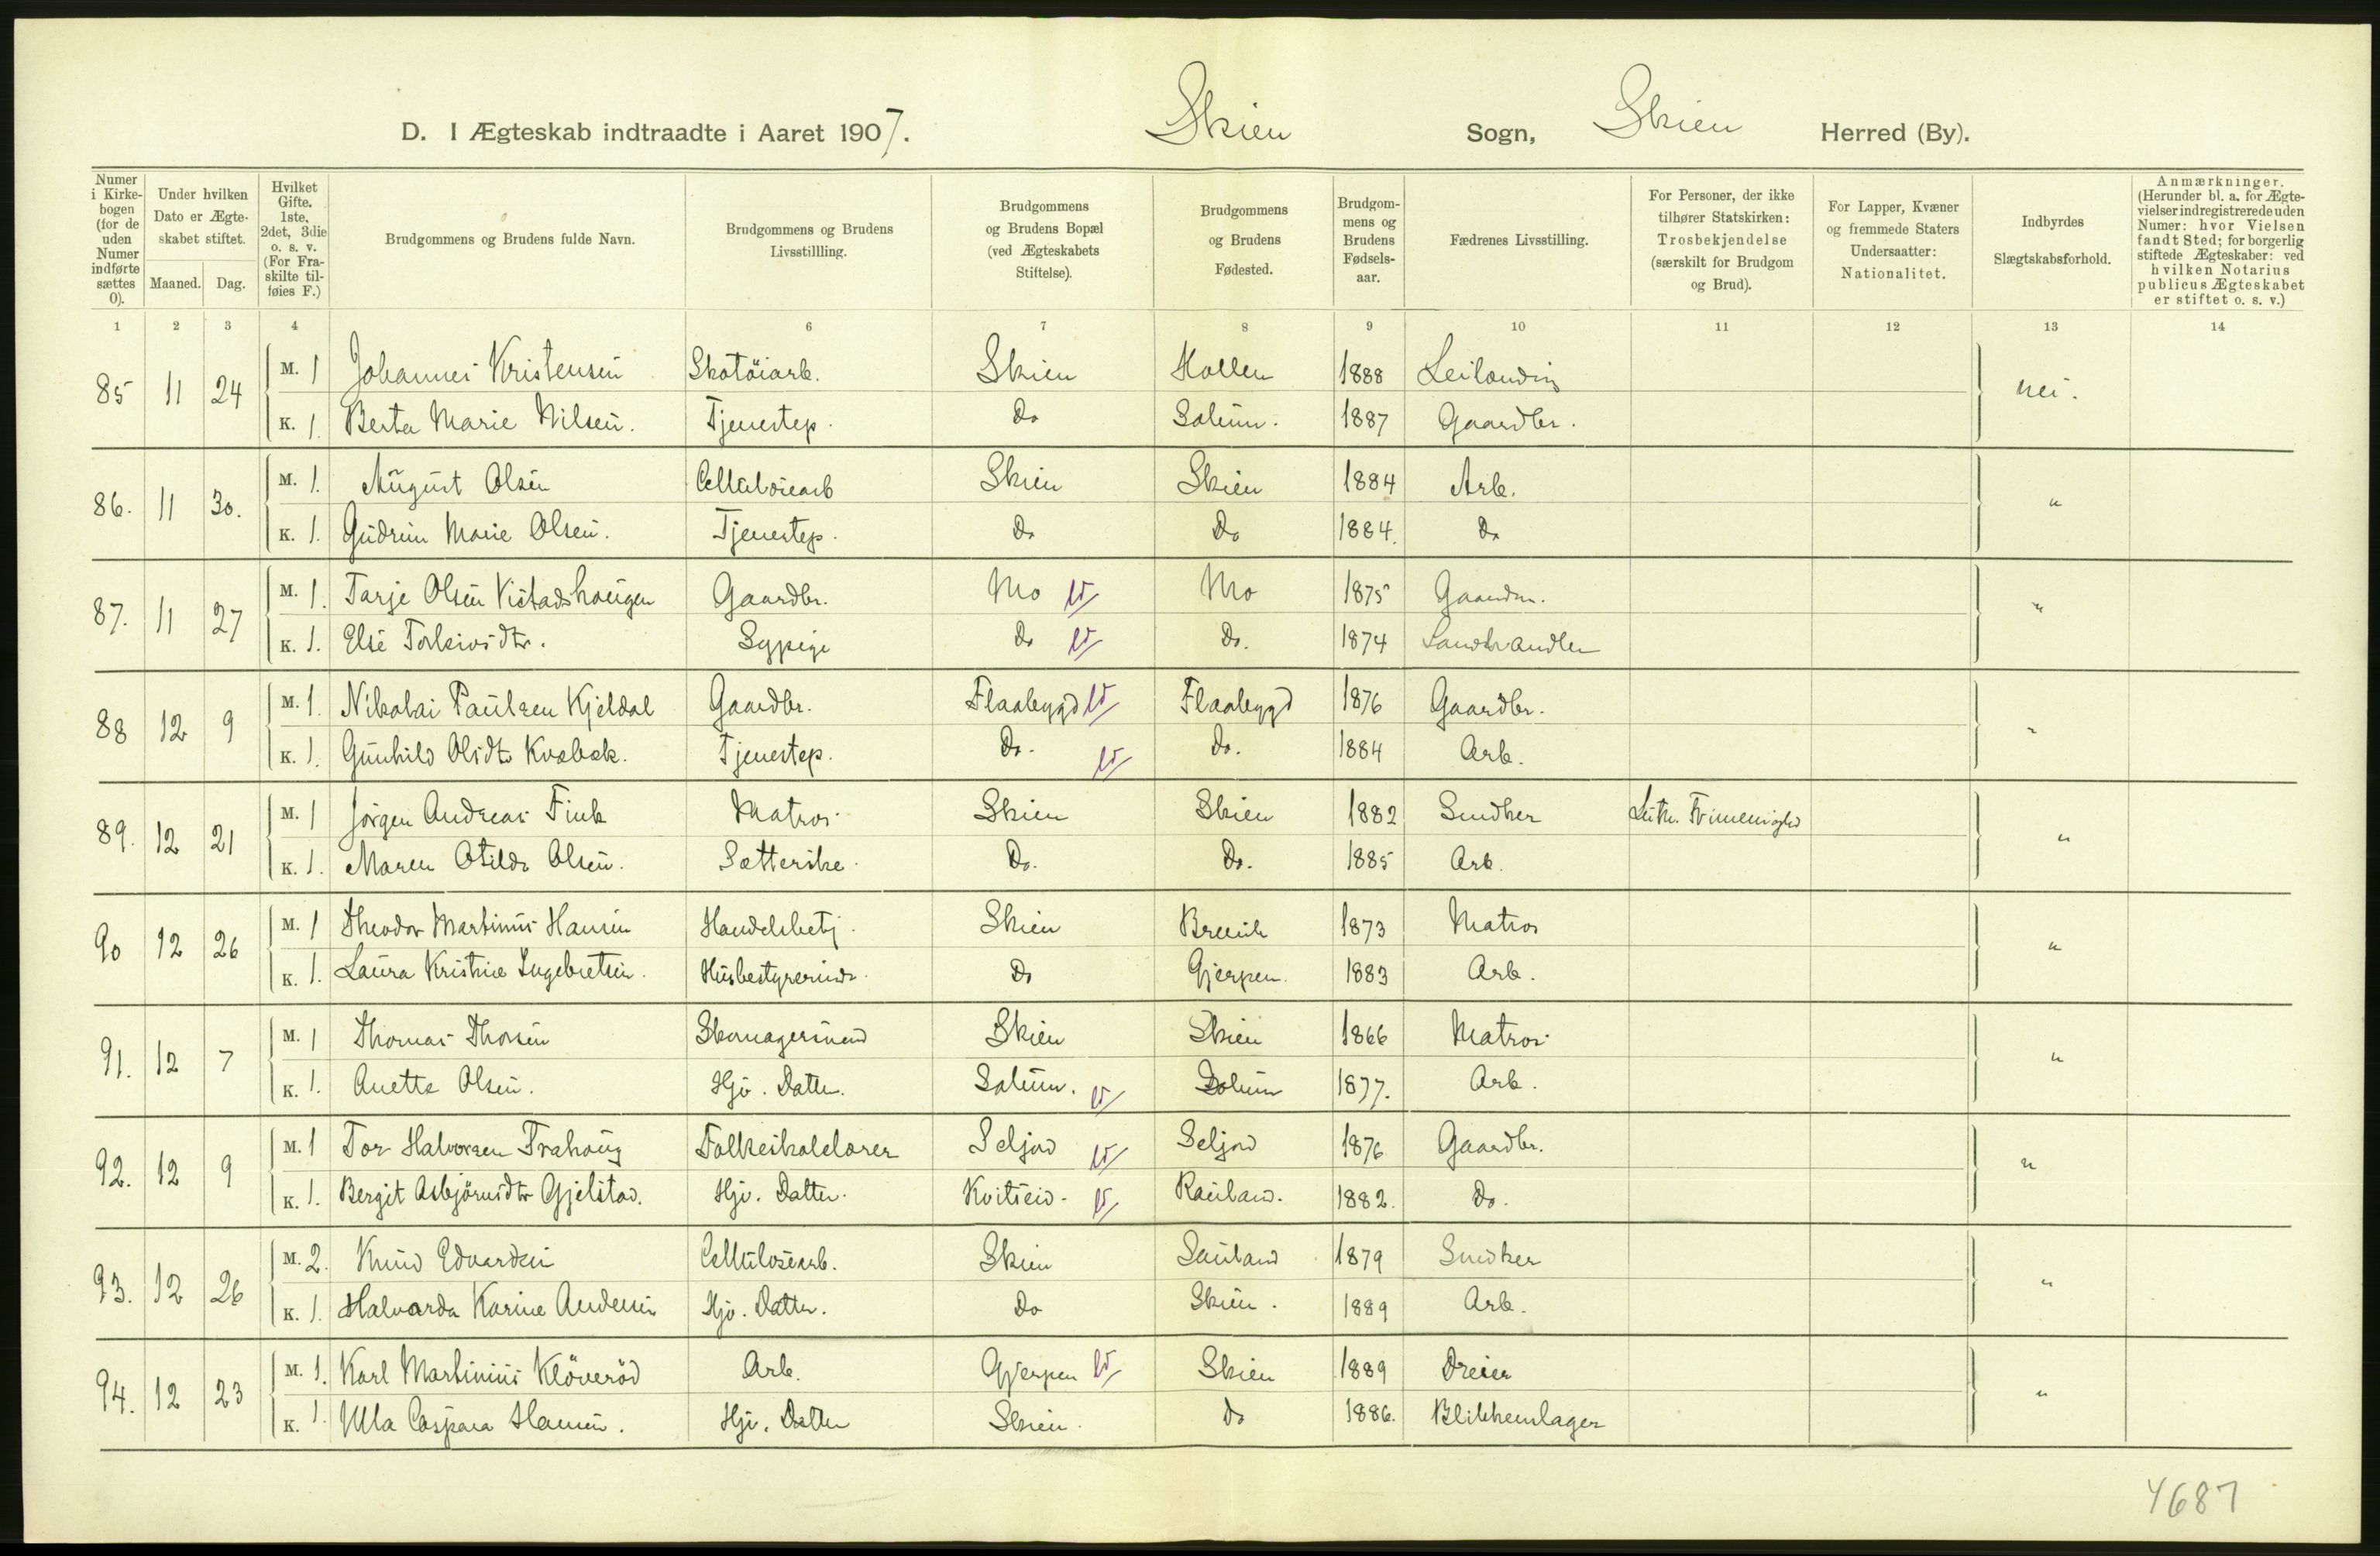 D. I Ægteskab indtraadte i Aaret 1907. Skien Sogn, Skien Herred (By).
Numer i Kirkebogen (for de uden Numer indførte sættes 0).
Under hvilken Dato er Ægteskabet stiftet.
Maaned. Dag.
Hvilket Gifte. 1ste, 2det, 3die o. s. v. (For Fraskilte tilføies F.)
Brudgommens og Brudens fulde Navn.
Brudgommens og Brudens Livsstillling.
Brudgommens og Brudens Bopæl (ved Ægteskabets Stiftelse).
Brudgommens og Brudens Fødested.
Brudgommens og Brudens Fødselsaar.
Fædrenes Livsstilling.
For Personer, der ikke tilhører Statskirken: Trosbekjendelse (særskilt for Brudgom og Brud).
For Lapper, Kvæner og fremmede Staters Undersaatter: Nationalitet.
Indbyrdes Slægtskabsforhold.
Anmærkninger. (Herunder bl. a. for Ægtevielser indregistrerede uden Numer: hvor Vielsen fandt Sted; for borgerlig stiftede Ægteskaber: ved hvilken Notarius publicus Ægteskabet er stiftet o. s. v.)
1 2 3 4 6 7 8 9 10 11 12 13 14
85 11 24 M. 1 Johannes Kristensen Skotöiarb. Skien Hollen 1888 Leilænding nei.
K. 1. Berta Marie Nilsen. Tjenestep. Do Solum. 1887 Gaardbr.
86. 11 30. M. 1. August Olsen Cellulosearb Skien Skien 1884 Arb. "
K. 1. Gudrun Marie Olsen. Tjenestep. Do Do 1884. Do
87. 11 27 M. 1. Tarje Olsen Vistadshaugen Gaardbr. Mo Mo 1875 Gaardm. "
K. 1. Else Torleivsdtr. Sypige Do Do. 1874 Landhandler
88 12 9 M. 1. Nikolai Paulsen Kjeldal Gaardbr. Flaabygd Flaabygd 1876 Gaardbr. "
K. 1. Gunhild Olsdtr Kvæbæk. Tjenestep. Do. Do. 1884 Arb.
89. 12 21 M. 1 Jörgen Andreas Fink Matros Skien Skien 1882 Snedker Luth. Frimenighed "
K. 1. Maren Otilde Olsen. Sætterske. Do. Do. 1885 Arb.
90 12 26 M. 1 Theodor Martinius Hansen Handelsbetj. Skien Brevik 1873 Matros "
K. 1. Laura Kristine Ingebretsen. Husbestyrerinde. Do Gjerpen. 1883 Arb.
91. 12 7 M. 1 Thomas Thorsen Skomagersvend Skien Skien 1866 Matros "
K. 1. Anette Olsen. Hjv. Datter. Solum. Solum 1877. Arb.
92. 12 9 M. 1 Tor Halvorsen Trahaug Folkeskolelærer Seljord Seljord 1876 Gaardbr. "
K. 1. Bergit Asbjörnsdtr Gjelstad. Hjv. Datter. Kvitseid. Rauland. 1882. Do.
93. 12 26 M. 2. Knud Edvardsen Cellulosearb. Skien Sauland 1879 Snedker "
K. 1. Halvarda Karine Andersen Hjv. Datter. Do Skien. 1889 Arb.
94. 12 23 M. 1. Karl Martinius Klöveröd Arb. Gjerpen Skien 1889 Dreier "
K. 1. Ulla Caspara Hansen. Hjv. Datter Skien. do 1886. Blikkenslager
4687